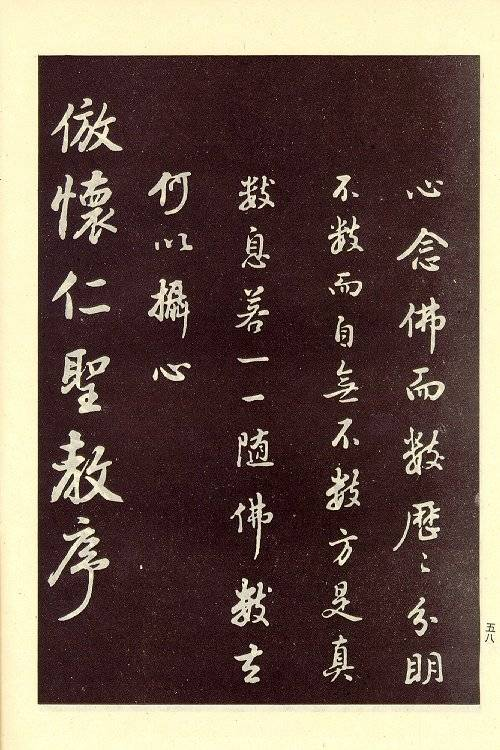 心念佛而數歷〻分明
不數而自無不數方是真
數息若一一隨佛數去
何以攝心
倣懷仁聖教序
五八